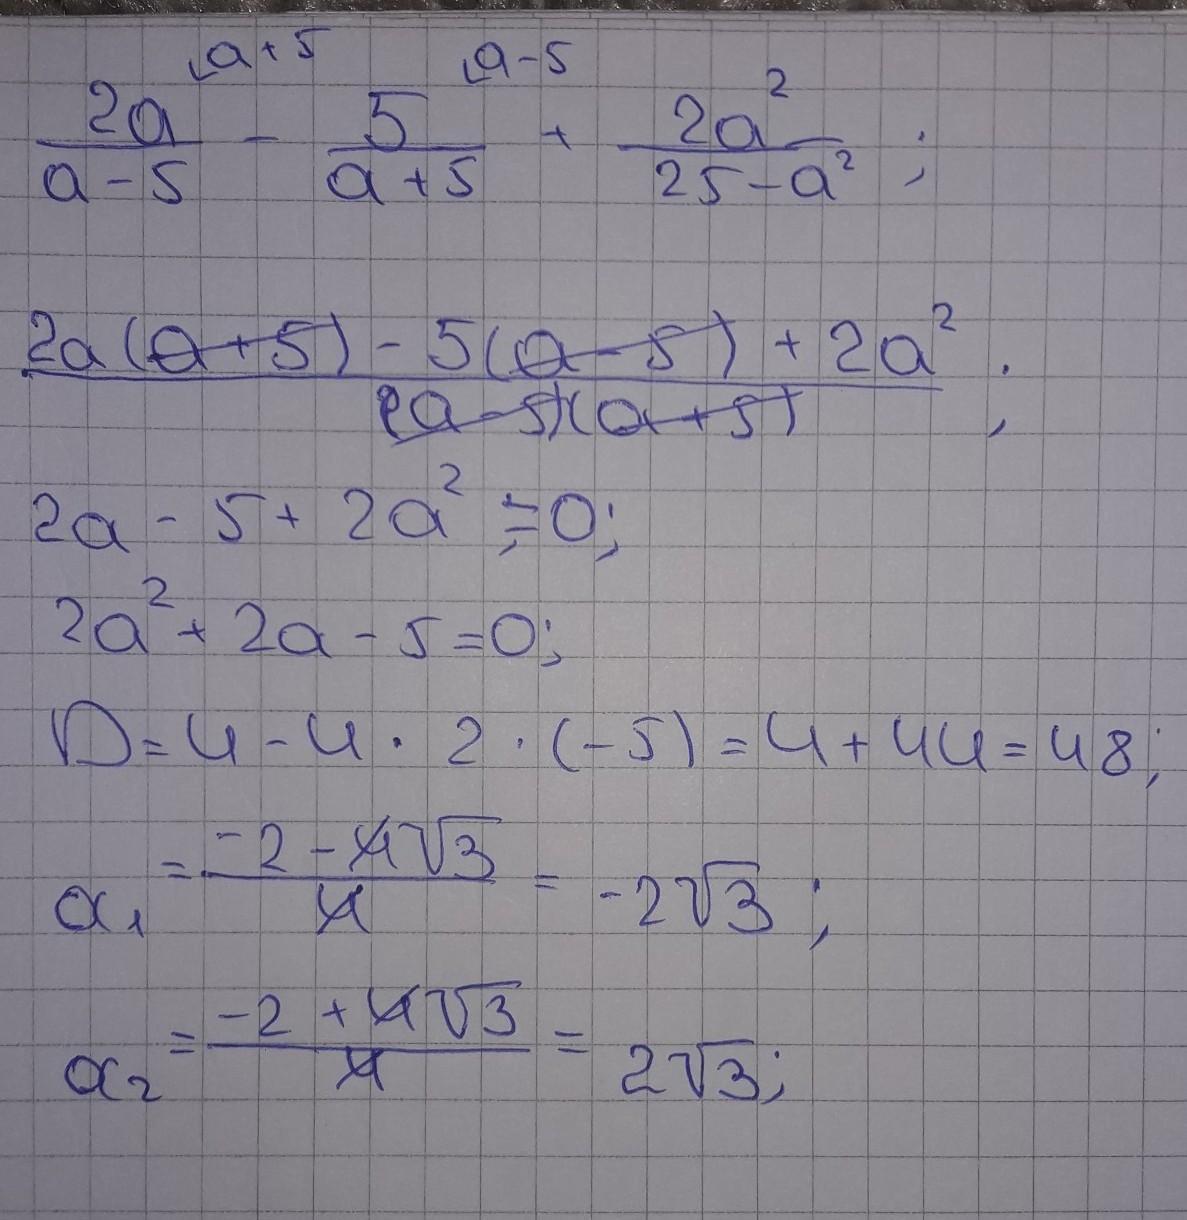 a+5 a-5
2a/(a-5) - 5/(a+5) + 2a²/(25-a²) ;
(2a(a+5) - 5(a-5) + 2a²)/((a-5)(a+5)) ;
2a - 5 + 2a² = 0;
2a² + 2a - 5 = 0;
D = 4 - 4 · 2 · (-5) = 4 + 44 = 48;
a₁ = (-2 - 4√3)/4 = -2√3 ;
a₂ = (-2 + 4√3)/4 = 2√3;